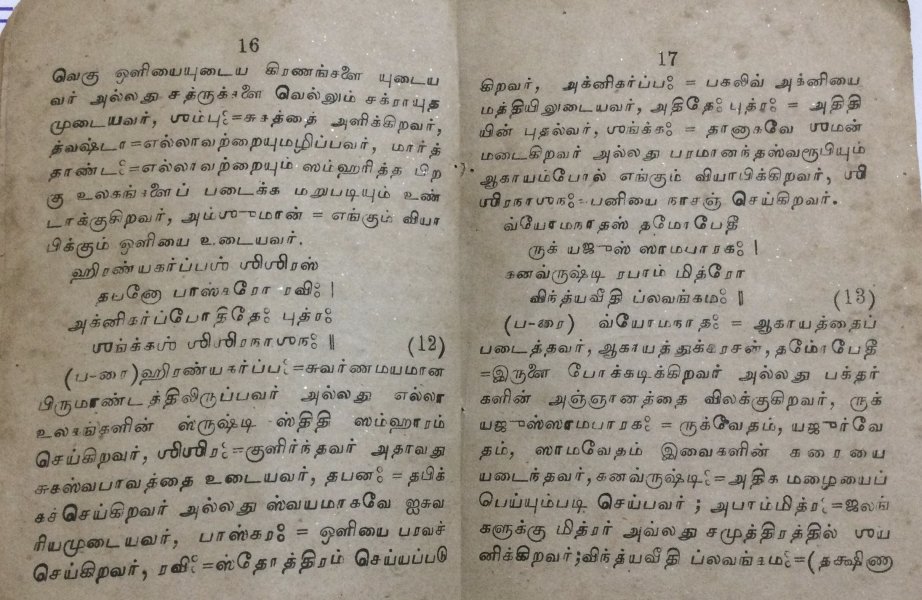 16
வெகு ஒளியையுடைய கிரணங்களை யுடைய
வர் அல்லது சத்ருக்களை வெல்லும் சக்ராயுத
முடையவர், ஶம்புஃ=சுகத்தை அளிக்கிறவர்,
த்வஷ்டா=எல்லாவற்றையுமழிப்பவர், மார்த்
தாண்டஃ=எல்லாவற்றையும் ஸம்ஹரித்த பிற
கு உலகங்களைப் படைக்க மறுபடியும் உண்
டாக்குகிறவர், அம்ஶுமான் = எங்கும் வியா
பிக்கும் ஒளியை உடையவர்.
ஹிரண்யகர்ப்பஶ் ஶிஶிரஸ்
தபனோ பாஸ்கரோ ரவிஃ |
அக்னிகர்ப்போதிதேஃ புத்ரஃ
ஶங்க்கஶ் ஶிஶிரநாஶநஃ ‖ (12)
(ப-ரை)ஹிரண்யகர்ப்பஃ=சுவர்ணமயமான
பிருமாண்டத்திலிருப்பவர் அல்லது எல்லா
உலகங்களின் ஸ்ருஷ்டி ஸ்திதி ஸம்ஹாரம்
செய்கிறவர், ஶிஶிரஃ=குளிர்ந்தவர் அதாவது
சுகஸ்வபாவத்தை உடையவர், தபனஃ = தபிக்
கச்செய்கிறவர் அல்லது ஸ்வயமாகவே ஐசுவ
ரியமுடையவர், பாஸ்கரஃ = ஒளியை பரவச்
செய்கிறவர், ரவிஃ=ஸ்தோத்திரம் செய்யப்படு
17
கிறவர், அக்னிகர்ப்பஃ = பகலில் அக்னியை
மத்தியிலுடையவர், அதிதேஃ புத்ரஃ = அதிதி
யின் புதல்வர், ஶங்க்கஃ = தானாகவே ஶமன்
மடைகிறவர் அல்லது பரமானந்தஸ்வரூபியும்
ஆகாயம்போல் எங்கும் வியாபிக்கிறவர், ஶி
ஶிரநாஶநஃ=பனியை நாசஞ் செய்கிறவர்.
வ்யோமநாதஸ் தமோபேதீ
ருக் யஜுஸ் ஸாமபாரகஃ |
கனவ்ருஷ்டி ரபாம் மித்ரோ
விந்த்யவீதி ப்லவங்கமஃ ‖ (13)
(ப-ரை) வ்யோமநாதஃ = ஆகாயத்தைப்
படைத்தவர், ஆகாயத்துக்கரசன், தமோபேதீ
=இருளை போக்கடிக்கிறவர் அல்லது பக்தர்
களின் அஞ்ஞானத்தை விலக்குகிறவர், ருக்
யஜுஸ்ஸாமபாரகஃ = ருக்வேதம், யஜுர்வே
தம், ஸாமவேதம் இவைகளின் கரையை
யடைந்தவர், கனவ்ருஷ்டிஃ=அதிக மழையைப்
பெய்யும்படி செய்பவர் ; அபாம்மித்ரஃ=ஜலங்
களுக்கு மித்ரர் அவ்லது சமுத்திரத்தில் ஶய
னிக்கிறவர்;விந்த்யவீதி ப்லவங்கமஃ=(தக்ஷிண